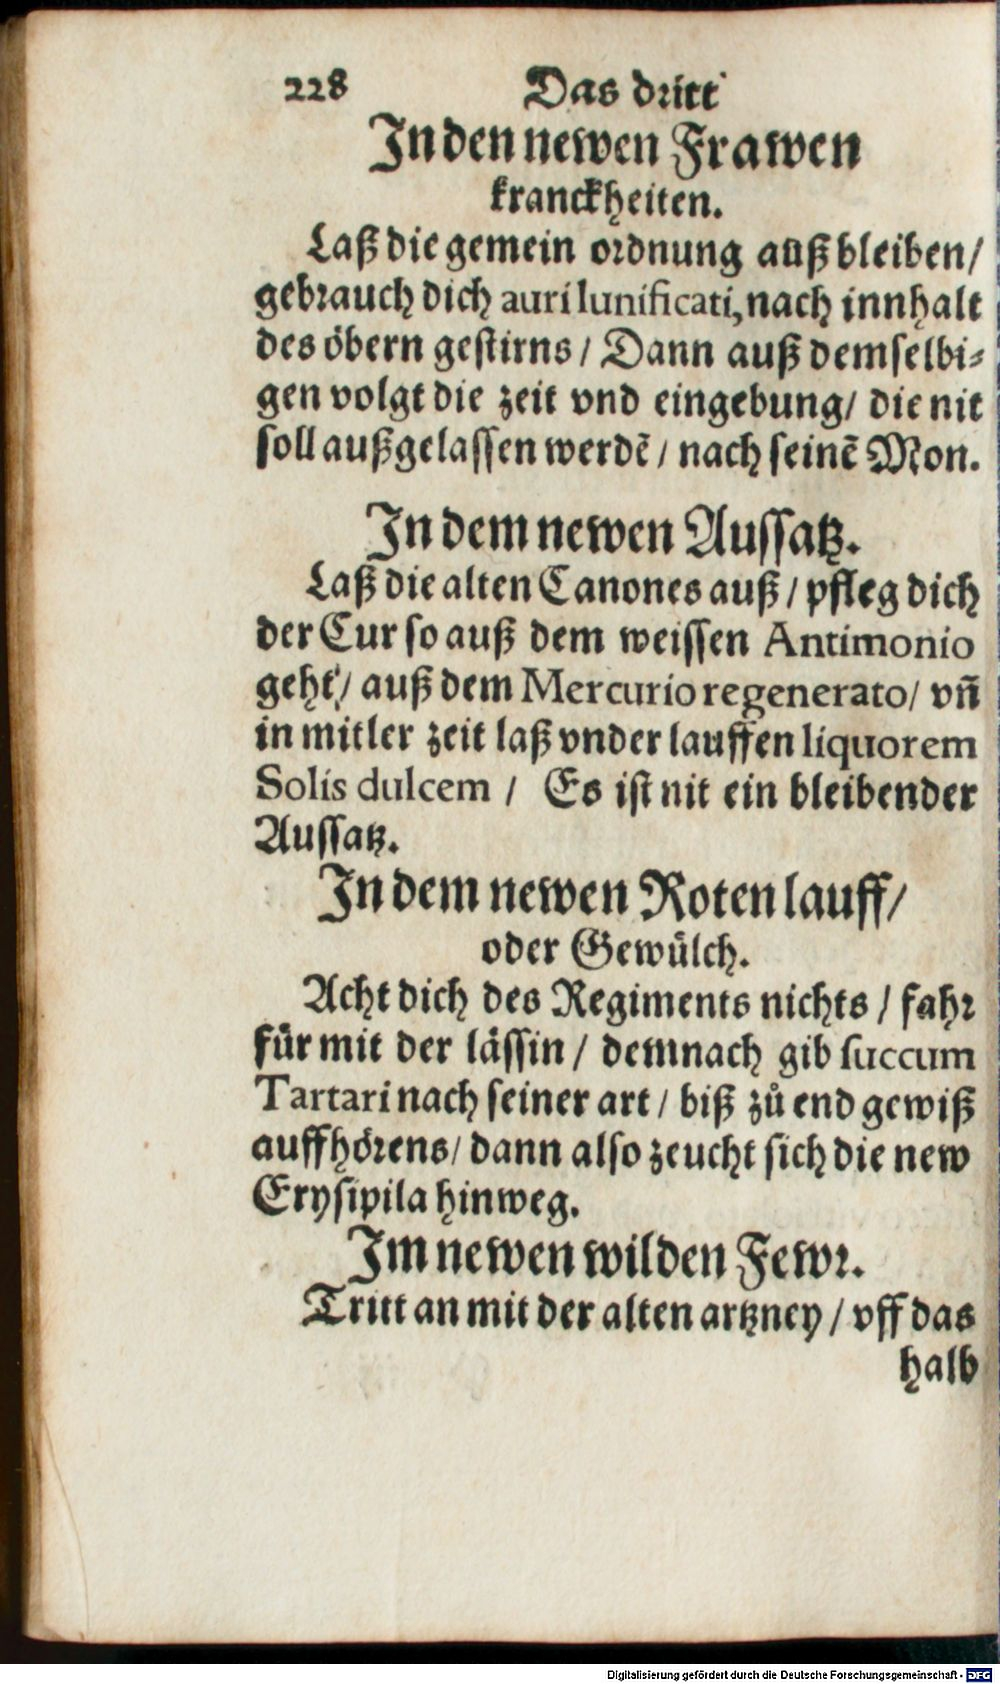 228 Das dritt
In den newen Frawen
kranckheiten.
Laß die gemein ordnung auß bleiben/
gebrauch dich auri lunificati, nach innhalt
des öbern gestirns / Dann auß demselbi⸗
gen volgt die zeit vnd eingebung/ die nit
soll außgelassen werdẽ / nach seinẽ Mon.
In dem newen Aussatz.
Laß die alten Canones auß / pfleg dich
der Cur so auß dem weissen Antimonio
geht / auß dem Mercurio regenerato/ vñ
in mitler zeit laß vnder lauffen liquorem
Solis dulcem / Es ist nit ein bleibender
Aussatz.
In dem newen Roten lauff/
oder Gewülch.
Acht dich des Regiments nichts / fahr
für mit der lässin / demnach gib succum
Tartari nach seiner art / biß zů end gewiß
auffhörens/ dann also zeucht sich die new
Erysipila hinweg.
Im newen wilden Fewr.
Tritt an mit der alten artzney / vff das
halb
Digitalisierung gefördert durch die Deutsche Forschungsgemeinschaft - DFG